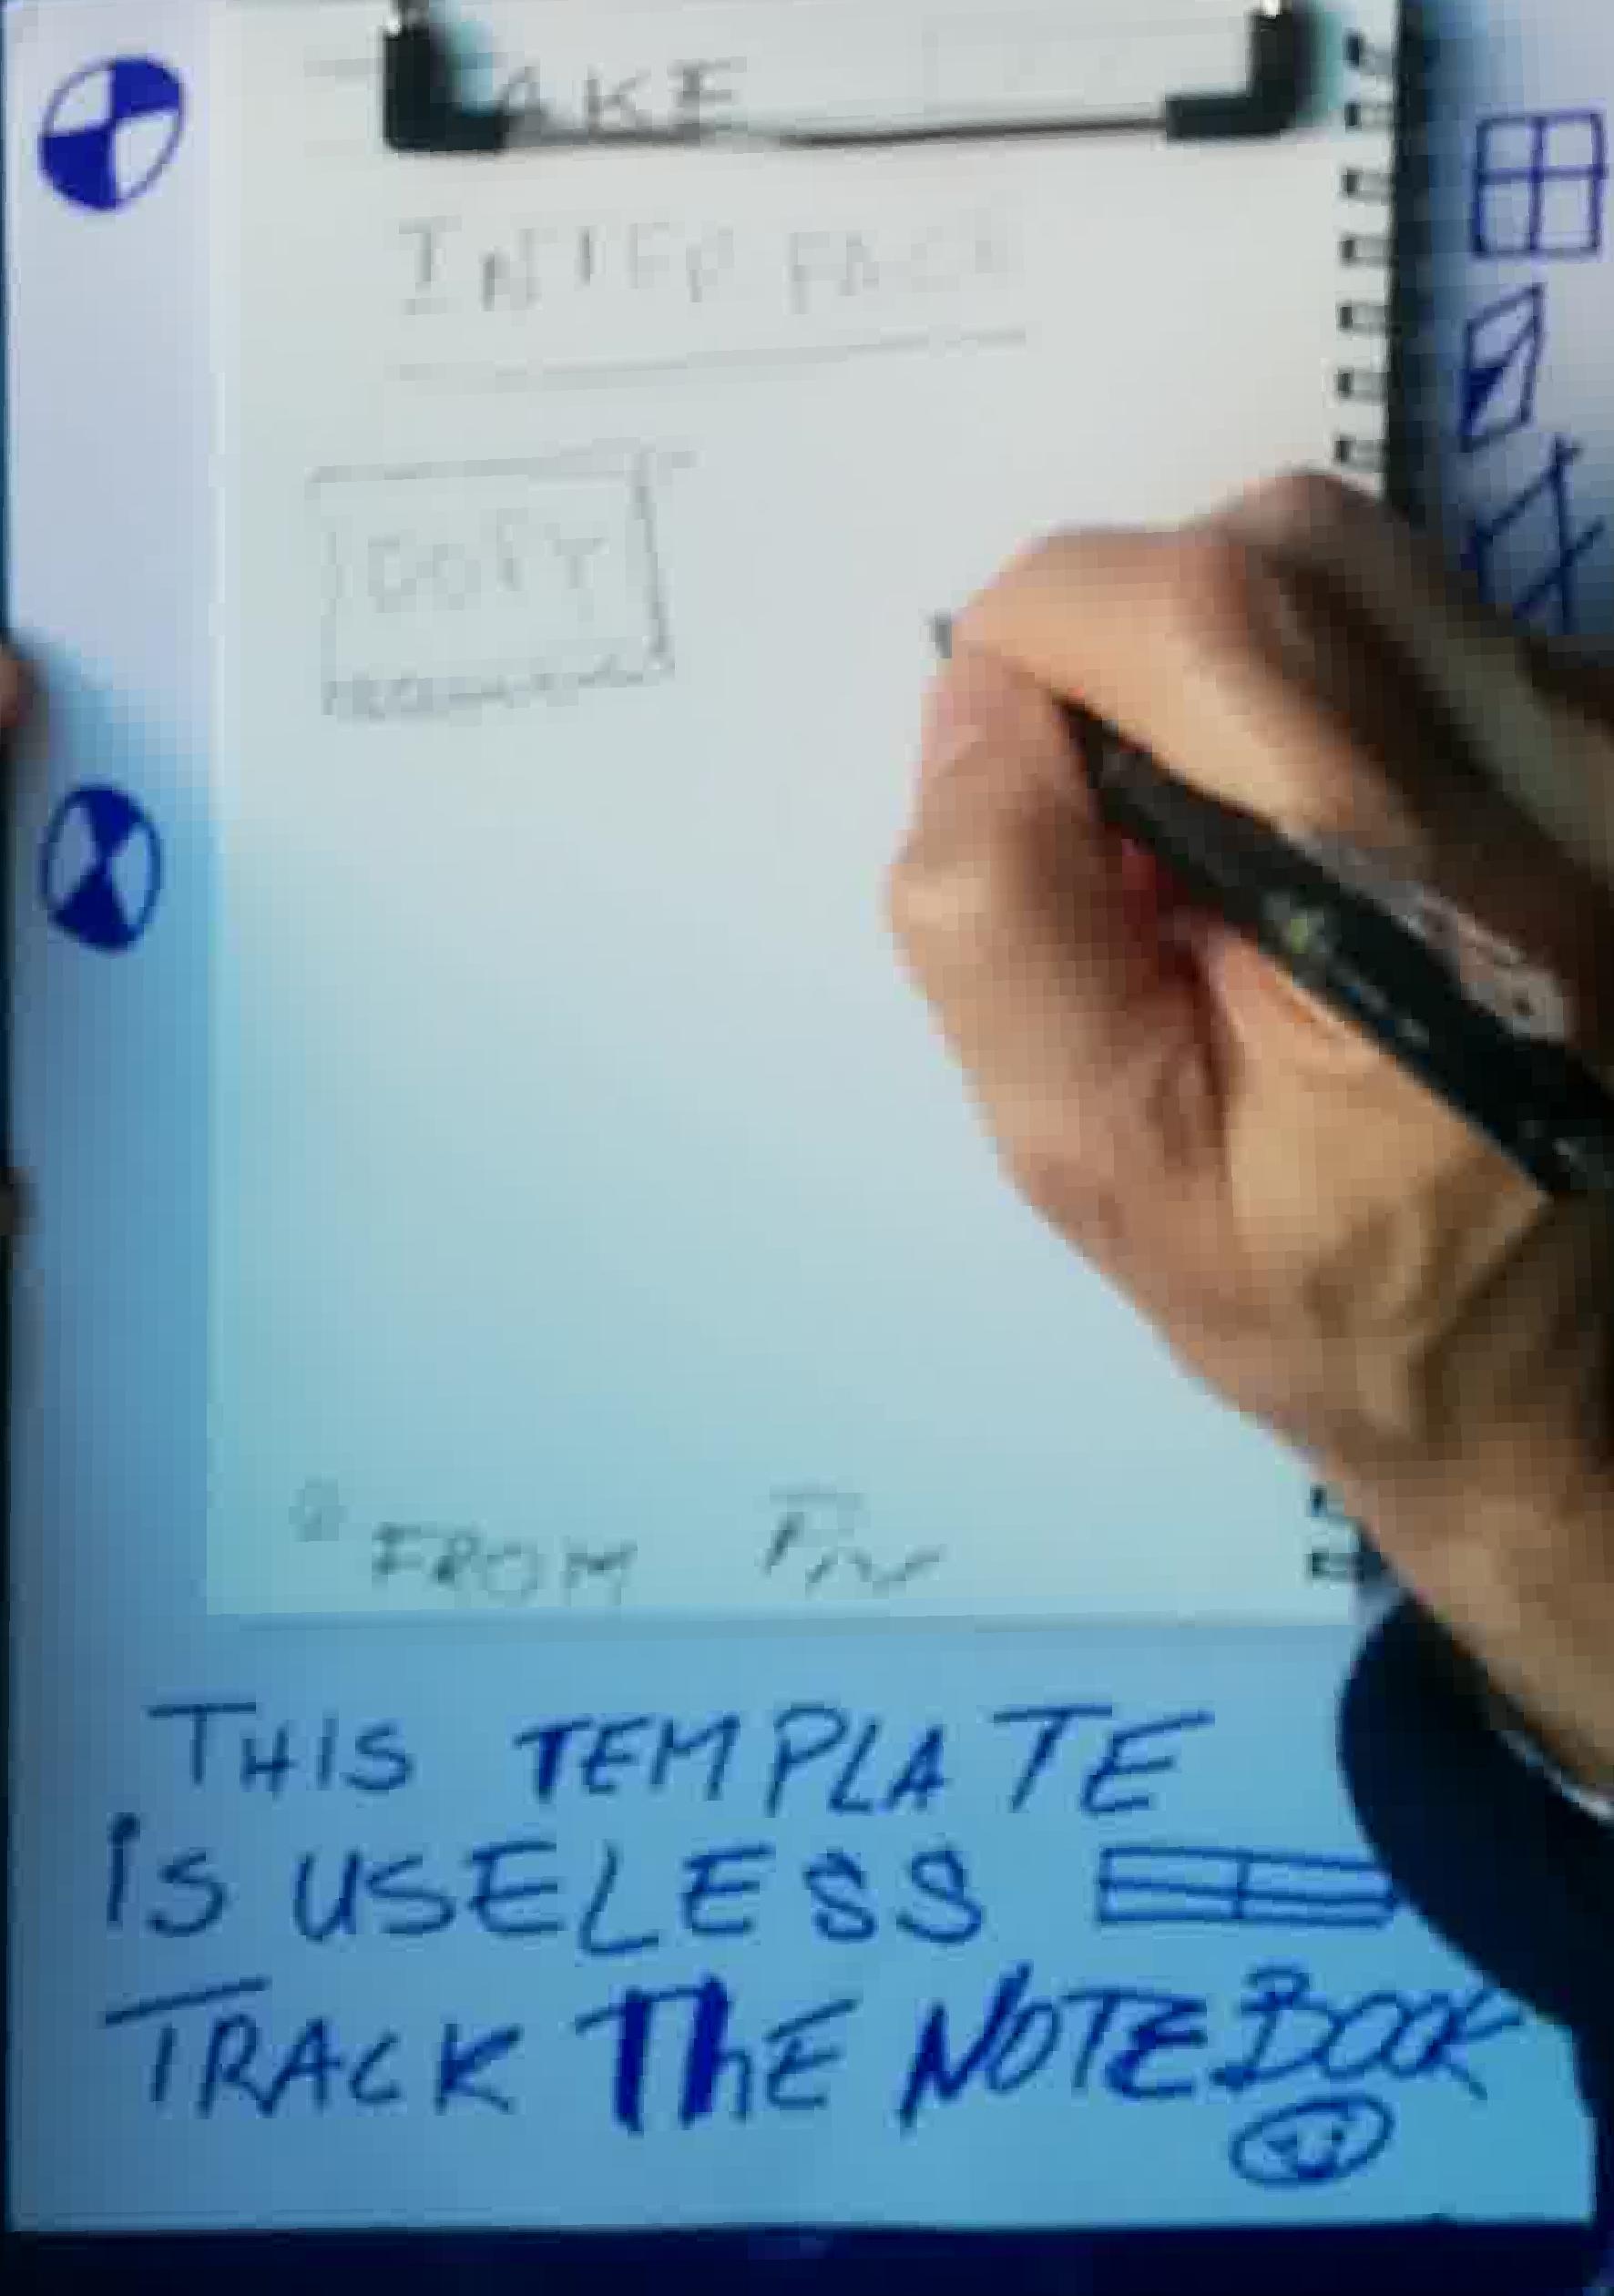 AKE
INTERFACE
COPY
FROM
THIS TEMPLATE
IS USELESS
TRACK THE NOTEBOOK